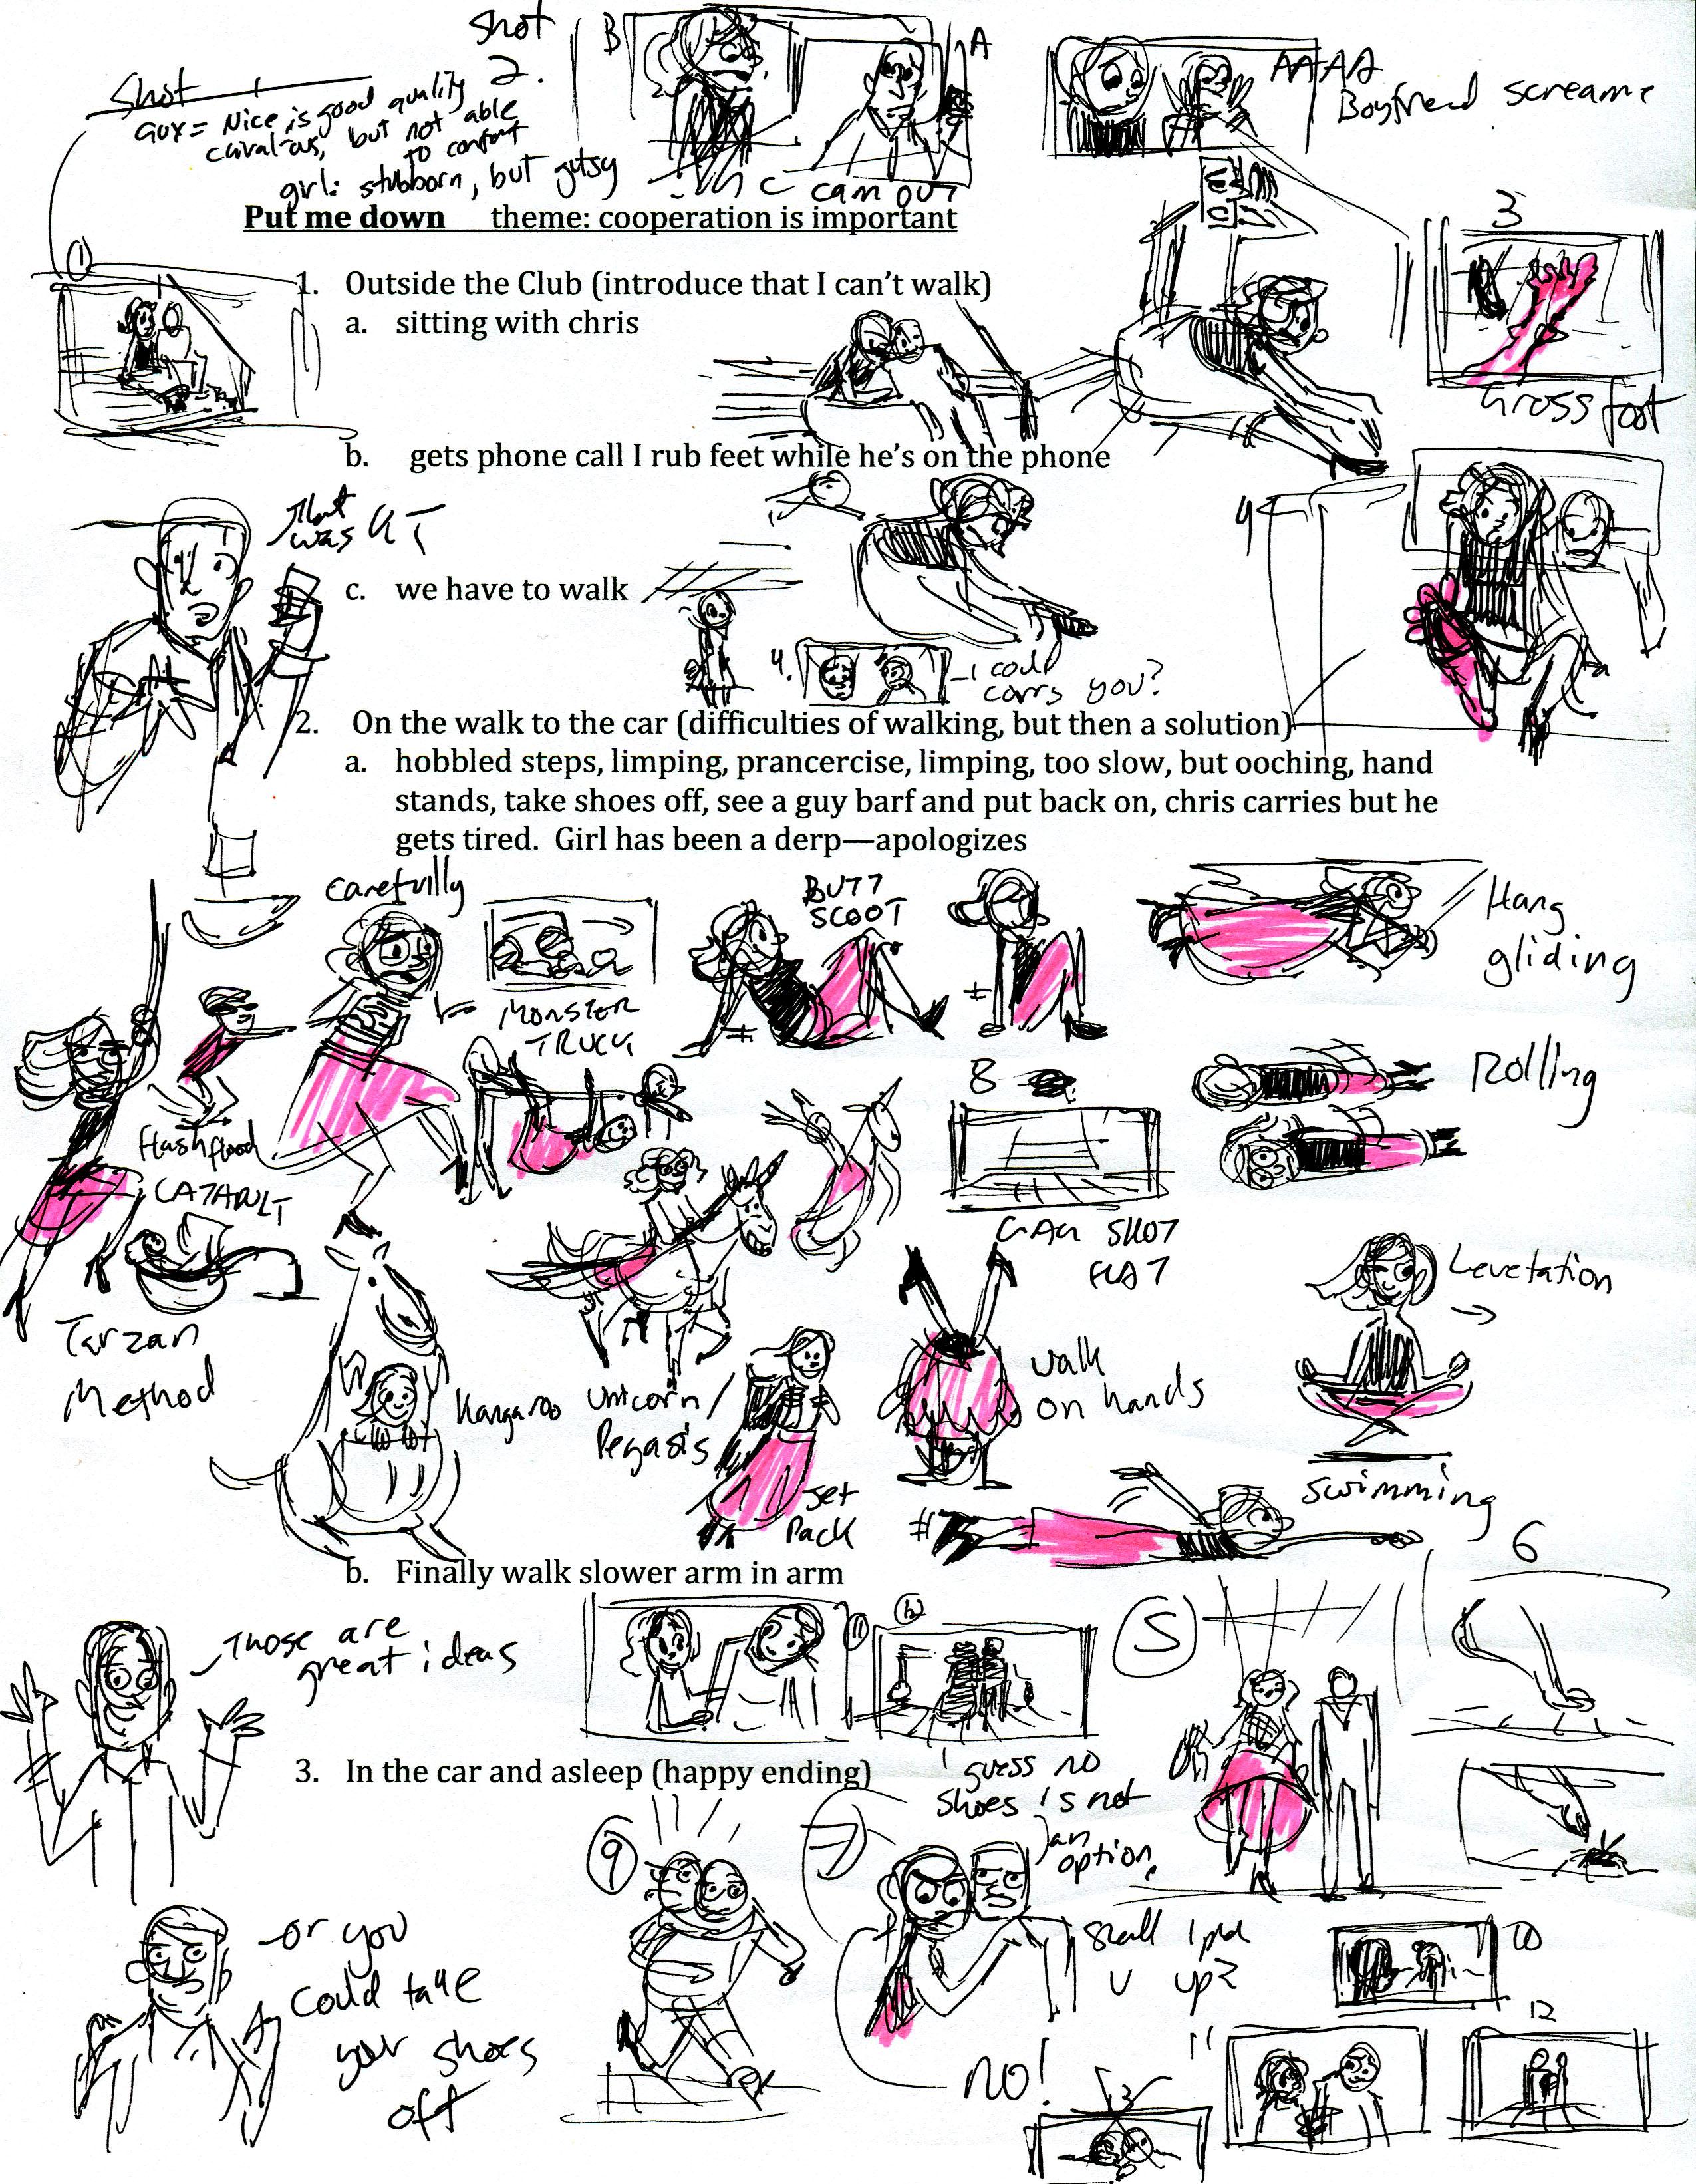 Shot 1
shot
2.
B
A
Guy = Nice is good quality
but not able
to
girl: stubborn, but gutsy
C cam out
AAAA
Boyfriend screams
Put me down theme: cooperation is important
1
1. Outside the Club (introduce that I can't walk)
a. sitting with chris
3
Gross foot
b. gets phone call I rub feet while he's on the phone
that
was
4
c. we have to walk
4.
I could
carry you?
2. On the walk to the car (difficulties of walking, but then a solution)
a. hobbled steps, limping, prancercise, limping, too slow, but ooching, hand
stands, take shoes off, see a guy barf and put back on, chris carries but he
gets tired. Girl has been a derp—apologizes
carefully
BUTT
SCOOT
Hang
gliding
MONSTER
TRUCK
Rolling
8
flash flood
CATAPULT
GAG SHOT
FLAT
Levetation
Tarzan
Method
Kangaroo
Unicorn/
Pegasis
Jet
Pack
walk
on hands
swimming
b. Finally walk slower arm in arm
6
5
Those are
great ideas
11
3. In the car and asleep (happy ending)
I guess no
shoes is not
an
option
9
7
Shall I pick
u up?
or you
could take
your shoes
off
NO!
10
11
12
13